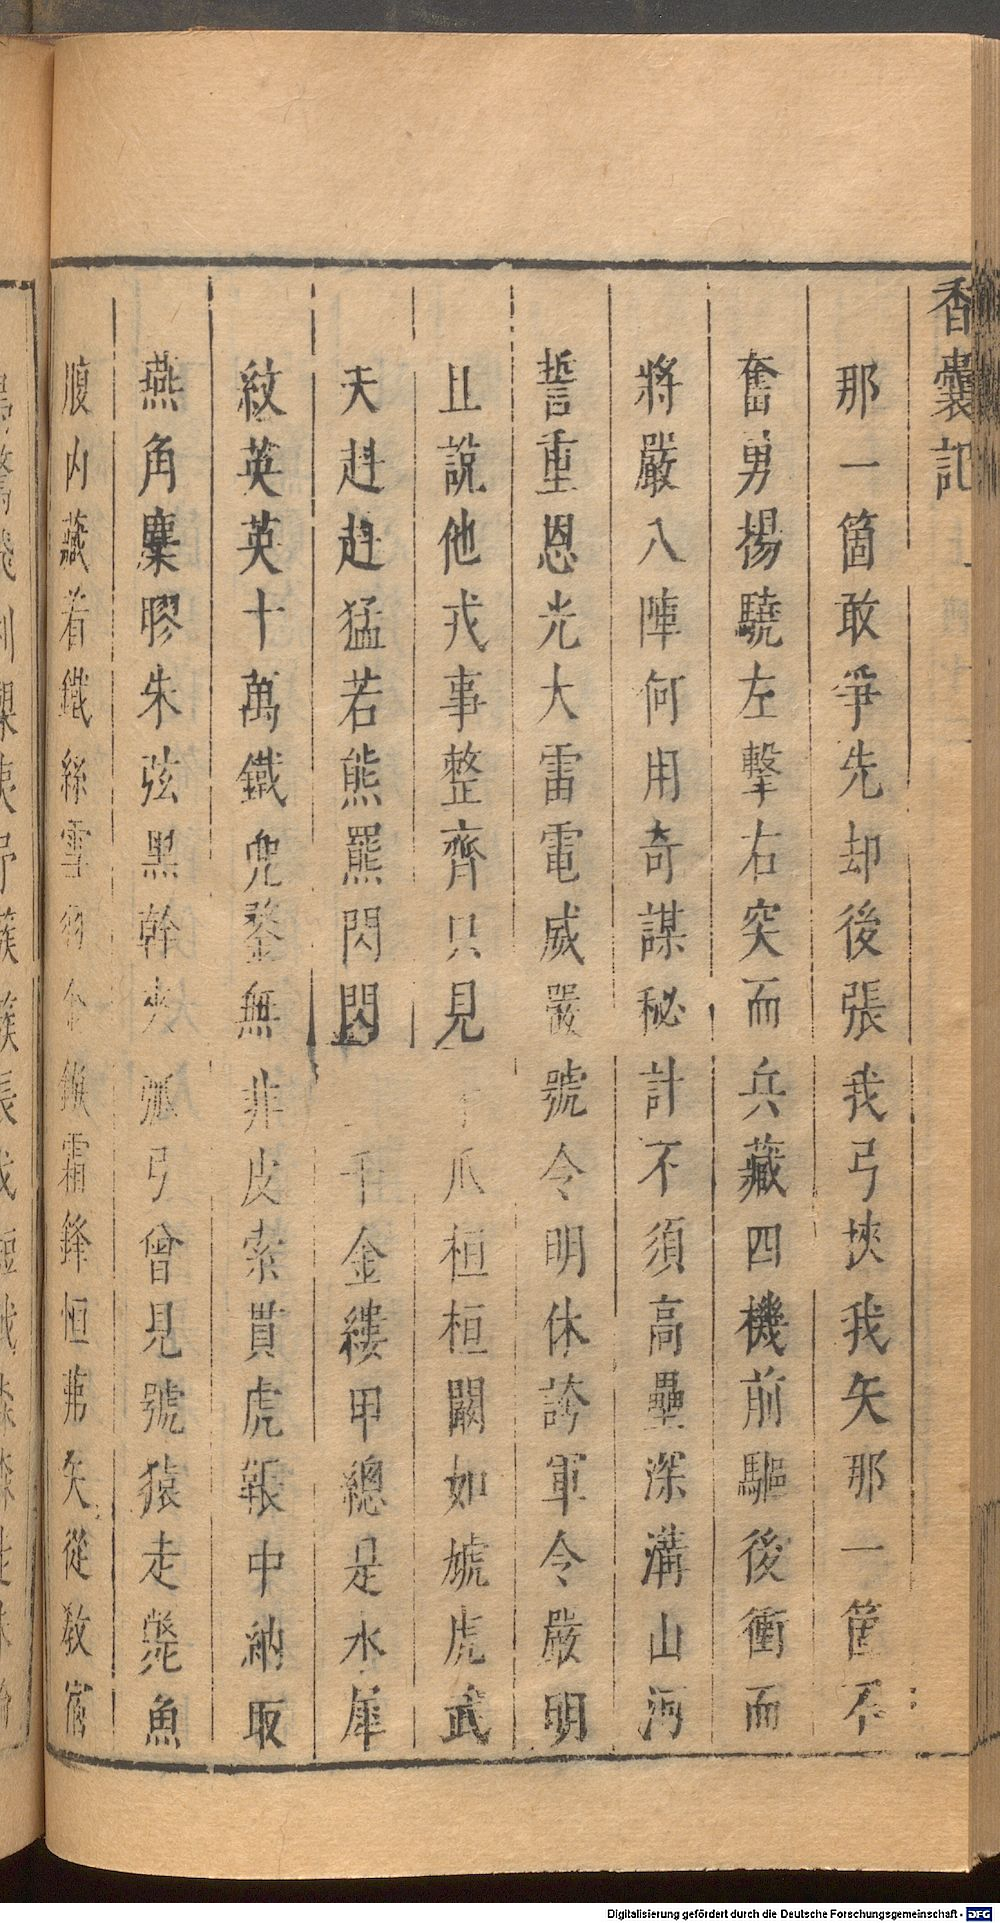 香囊記
那一箇敢爭先却後張我弓挾我矢那一箇不
奮勇揚驍左擊右突而兵藏四機前驅後衝而
將嚴八陣何用奇謀秘計不須高壘深溝山河
誓重恩光大雷電威嚴號令明休誇軍令嚴明
且說他戎事整齊只見 爪桓桓闞如虓虎武
夫赳赳猛若熊羆閃閃 千金縷甲總是水犀
紋英英十萬鐵兜鍪無非皮索貫虎韔中納取
燕角麋膠朱弦黑幹夾弧弓曾見號猿走斃魚
腹內藏着鐵絲雪羽金鏃霜鋒恒茀矢從教
Digitalisierung gefördert durch die Deutsche Forschungsgemeinschaft - DFG